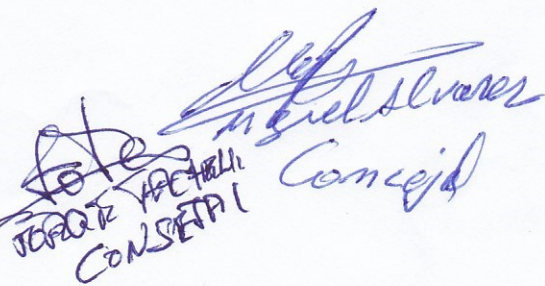 Miguel Alvarez
Concejal
JORGE
CONSEJAL